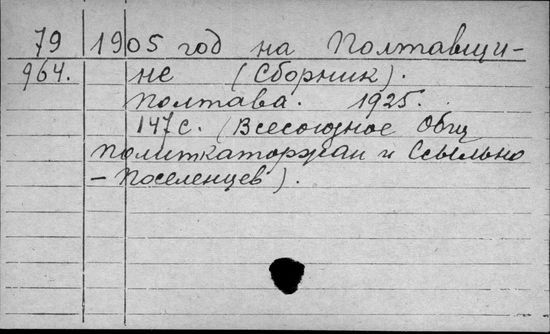 79 1905 год на Полтавщи-
964. не (Сборник).
Полтава. 1925.
147 с. (Всесоюзное Общ
политкаторжан и Ссыльно
- Поселенцев).